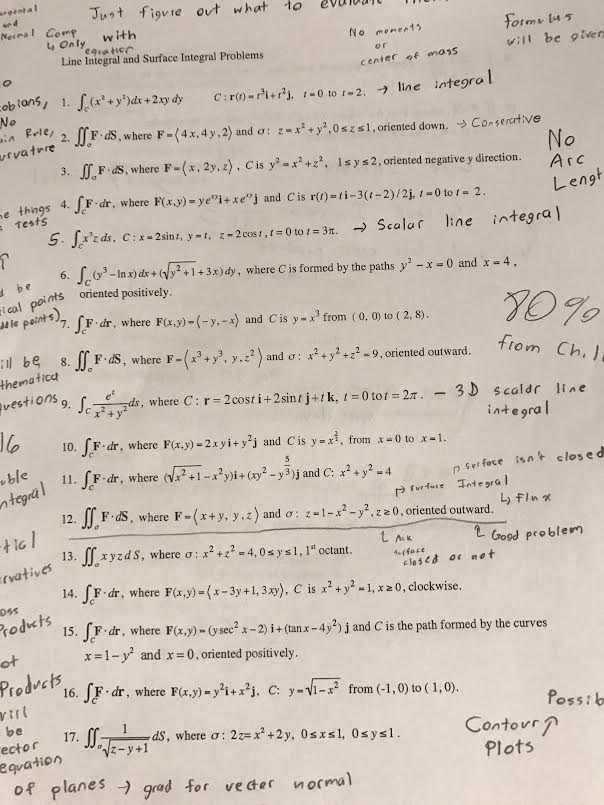 Just figure out what to
and
Normal Comp with
↳ Only equation
No moments
or
center of mass
Formulas
will be given
Line Integral and Surface Integral Problems
No
1. ∫_C (x³+y²)dx+2xy dy C: r(t)=t³i+t²j, t=0 to t=2. → line integral
2. ∬_σ F·dS, where F=⟨4x,4y,2⟩ and σ: z=x²+y², 0≤z≤1, oriented down. → Conserative
No
Arc
3. ∬_σ F·dS, where F=⟨x, 2y, z⟩, C is y²=x²+z², 1≤y≤2, oriented negative y direction.
things
tests
4. ∫_C F·dr, where F(x,y)=ye^{xy}i+xe^{xy}j and C is r(t)=ti-3(t-2)/2j, t=0 to t=2.
5. ∫_C x³z ds, C: x=2sint, y=t, z=2cost, t=0 to t=3π. → Scalar line integral
6. ∫_C (y³-lnx)dx+(√(y²+1)+3x)dy, where C is formed by the paths y²-x=0 and x=4,
oriented positively.
be
points
points)
7. ∫_C F·dr, where F(x,y)=⟨-y,-x⟩ and C is y=x³ from (0,0) to (2,8).
80%
from Ch.
be
8. ∬_σ F·dS, where F=⟨x³+y³, y, z²⟩ and σ: x²+y²+z²=9, oriented outward.
9. ∫_C e^z/(x²+y²) ds, where C: r=2cost i+2sint j+t k, t=0 to t=2π. – 3D scalar line
integral
16
10. ∫_C F·dr, where F(x,y)=2xyi+y²j and C is y=x^{3/2}, from x=0 to x=1.
11. ∫_C F·dr, where (√(x²+1)-x²y)i+(xy²-y^{5/3})j and C: x²+y²=4
surface isn't closed
surface Integral
↳ Flux
12. ∬_σ F·dS, where F=⟨x+y, y, z⟩ and σ: z=1-x²-y², z≥0, oriented outward.
Ask
surface
closed or not
Good problem
13. ∬_σ xyz dS, where σ: x²+z²=4, 0≤y≤1, 1st octant.
14. ∫_C F·dr, where F(x,y)=⟨x-3y+1, 3xy⟩, C is x²+y²=1, x≥0, clockwise.
Products
15. ∫_C F·dr, where F(x,y)=(ysec²x-2)i+(tanx-4y²)j and C is the path formed by the curves
x=1-y² and x=0, oriented positively.
Products
16. ∫_C F·dr, where F(x,y)=y²i+x²j, C: y=√(1-x²) from (-1,0) to (1,0).
be
equation
17. ∬_σ 1/√(z-y+1) dS, where σ: 2z=x²+2y, 0≤x≤1, 0≤y≤1.
Contour
Plots
of planes → grad for vector normal